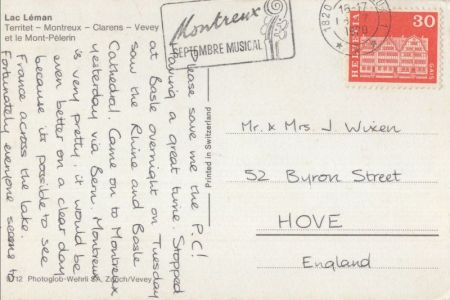 Lac Léman
Territet – Montreux – Clarens – Vevey
et le Mont-Pélerin
Please save me the P.C!
Having a great time. Stopped
at Basle overnight on Tuesday
saw the Rhine and Basle
Cathedral. Came on to Montreux
yesterday via Bern. Montreux
is very pretty. it would be
even better on a clear day
because its possible to see
France across the lake.
Fortunately everyone seems to
12 Photoglob-Wehrli SA, Zürich/Vevey
Printed in Switzerland
Montreux
SEPTEMBRE MUSICAL
1820
HELVETIA
30
Mr. x Mrs. J Wixen
52 Byron Street
HOVE
England